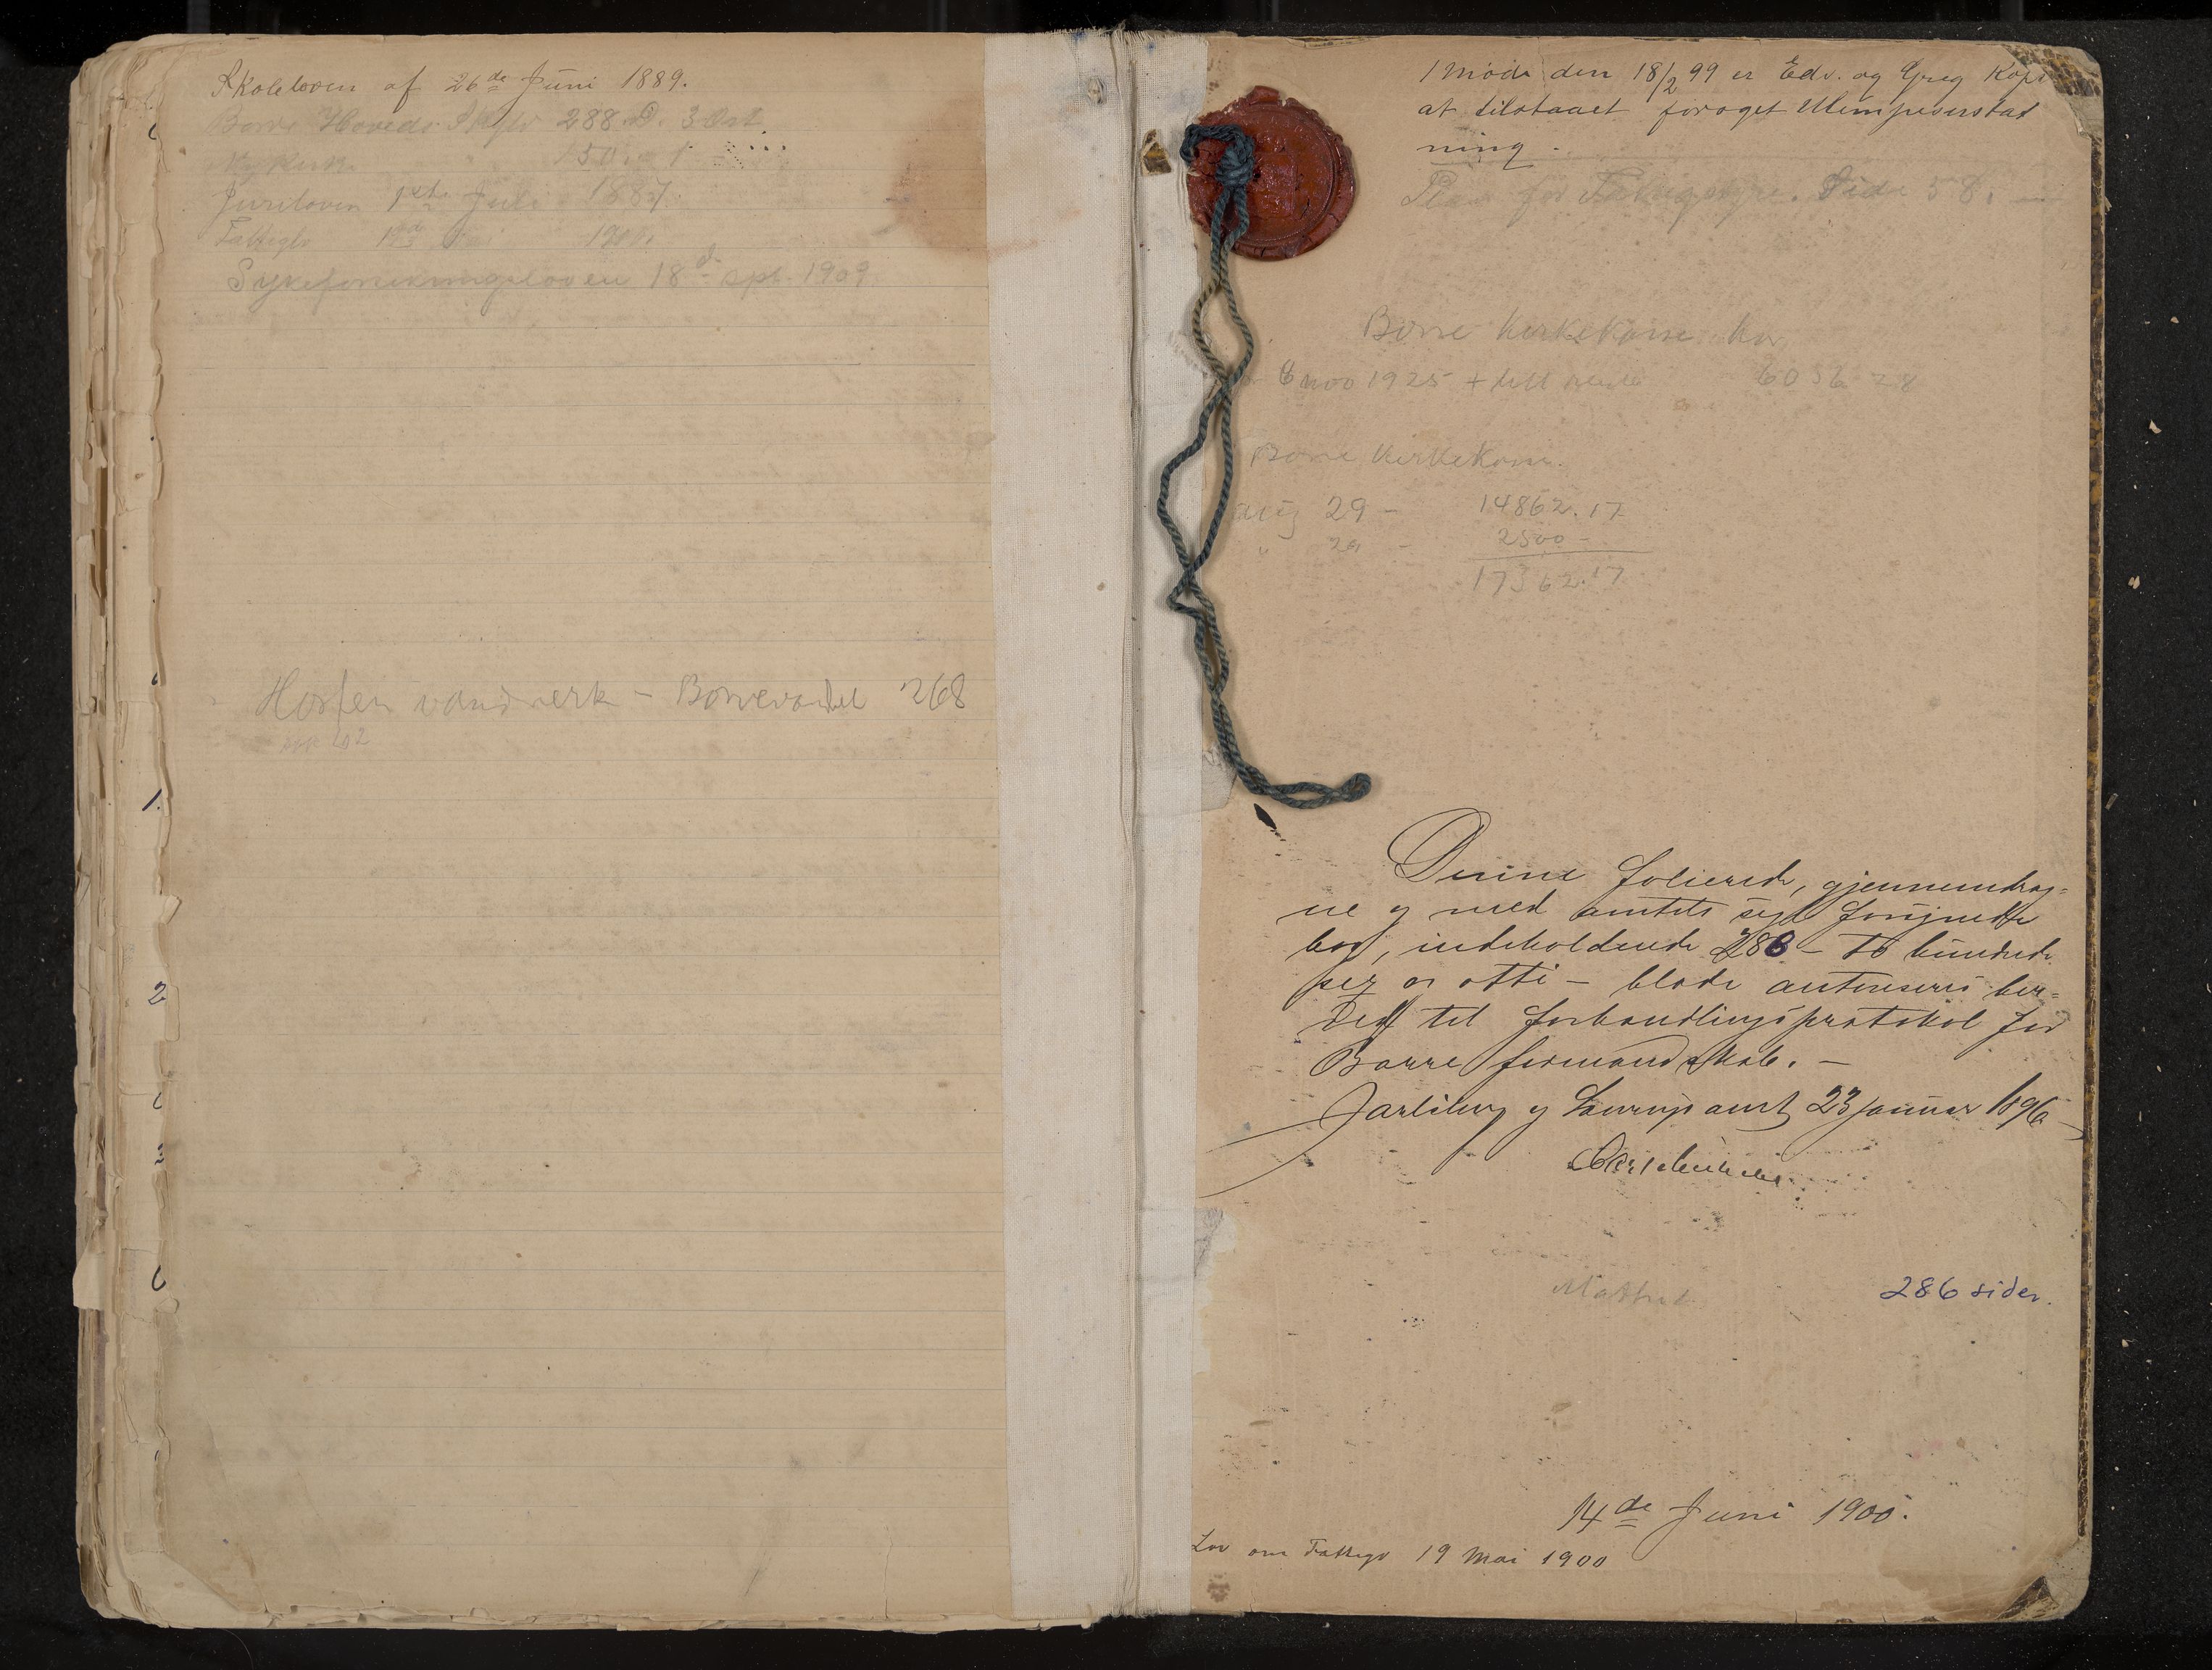 Skoleloven af 26de Juni 1889.
Borre Hoveds. Skylv 288 D. 3 Ort.
Nykirk
Juriloven 1ste Juli 1887.
Fattiglv 19de 1900.
Sykeforsikringsloven 18de spt. 1909.
Horten vandverk - Borrevandet 268
1 Møde den 18/2 99 er Edv. og Greg
at tilstaaet forøget
ning.
Plan for Side 58.
Borre kirkekasse har
6 nov 1925 + 6056 28
Borre kirkekasse.
aug 29 - 14862.17
" 29 - 2500 -
17362.17
Denne folierede, gjennemdrag=
ne og med amtets segl forsynede
bog, indeholdende 286 - to hundrede
sex og otti - blade autoriseres her=
ved til forhandlingsprotokol for
Borre formandskab. -
Jarlsberg og Laurvigs amt 23 januar 1896
286 sider.
14de Juni 1900.
Lov om Fattigv 19 Mai 1900